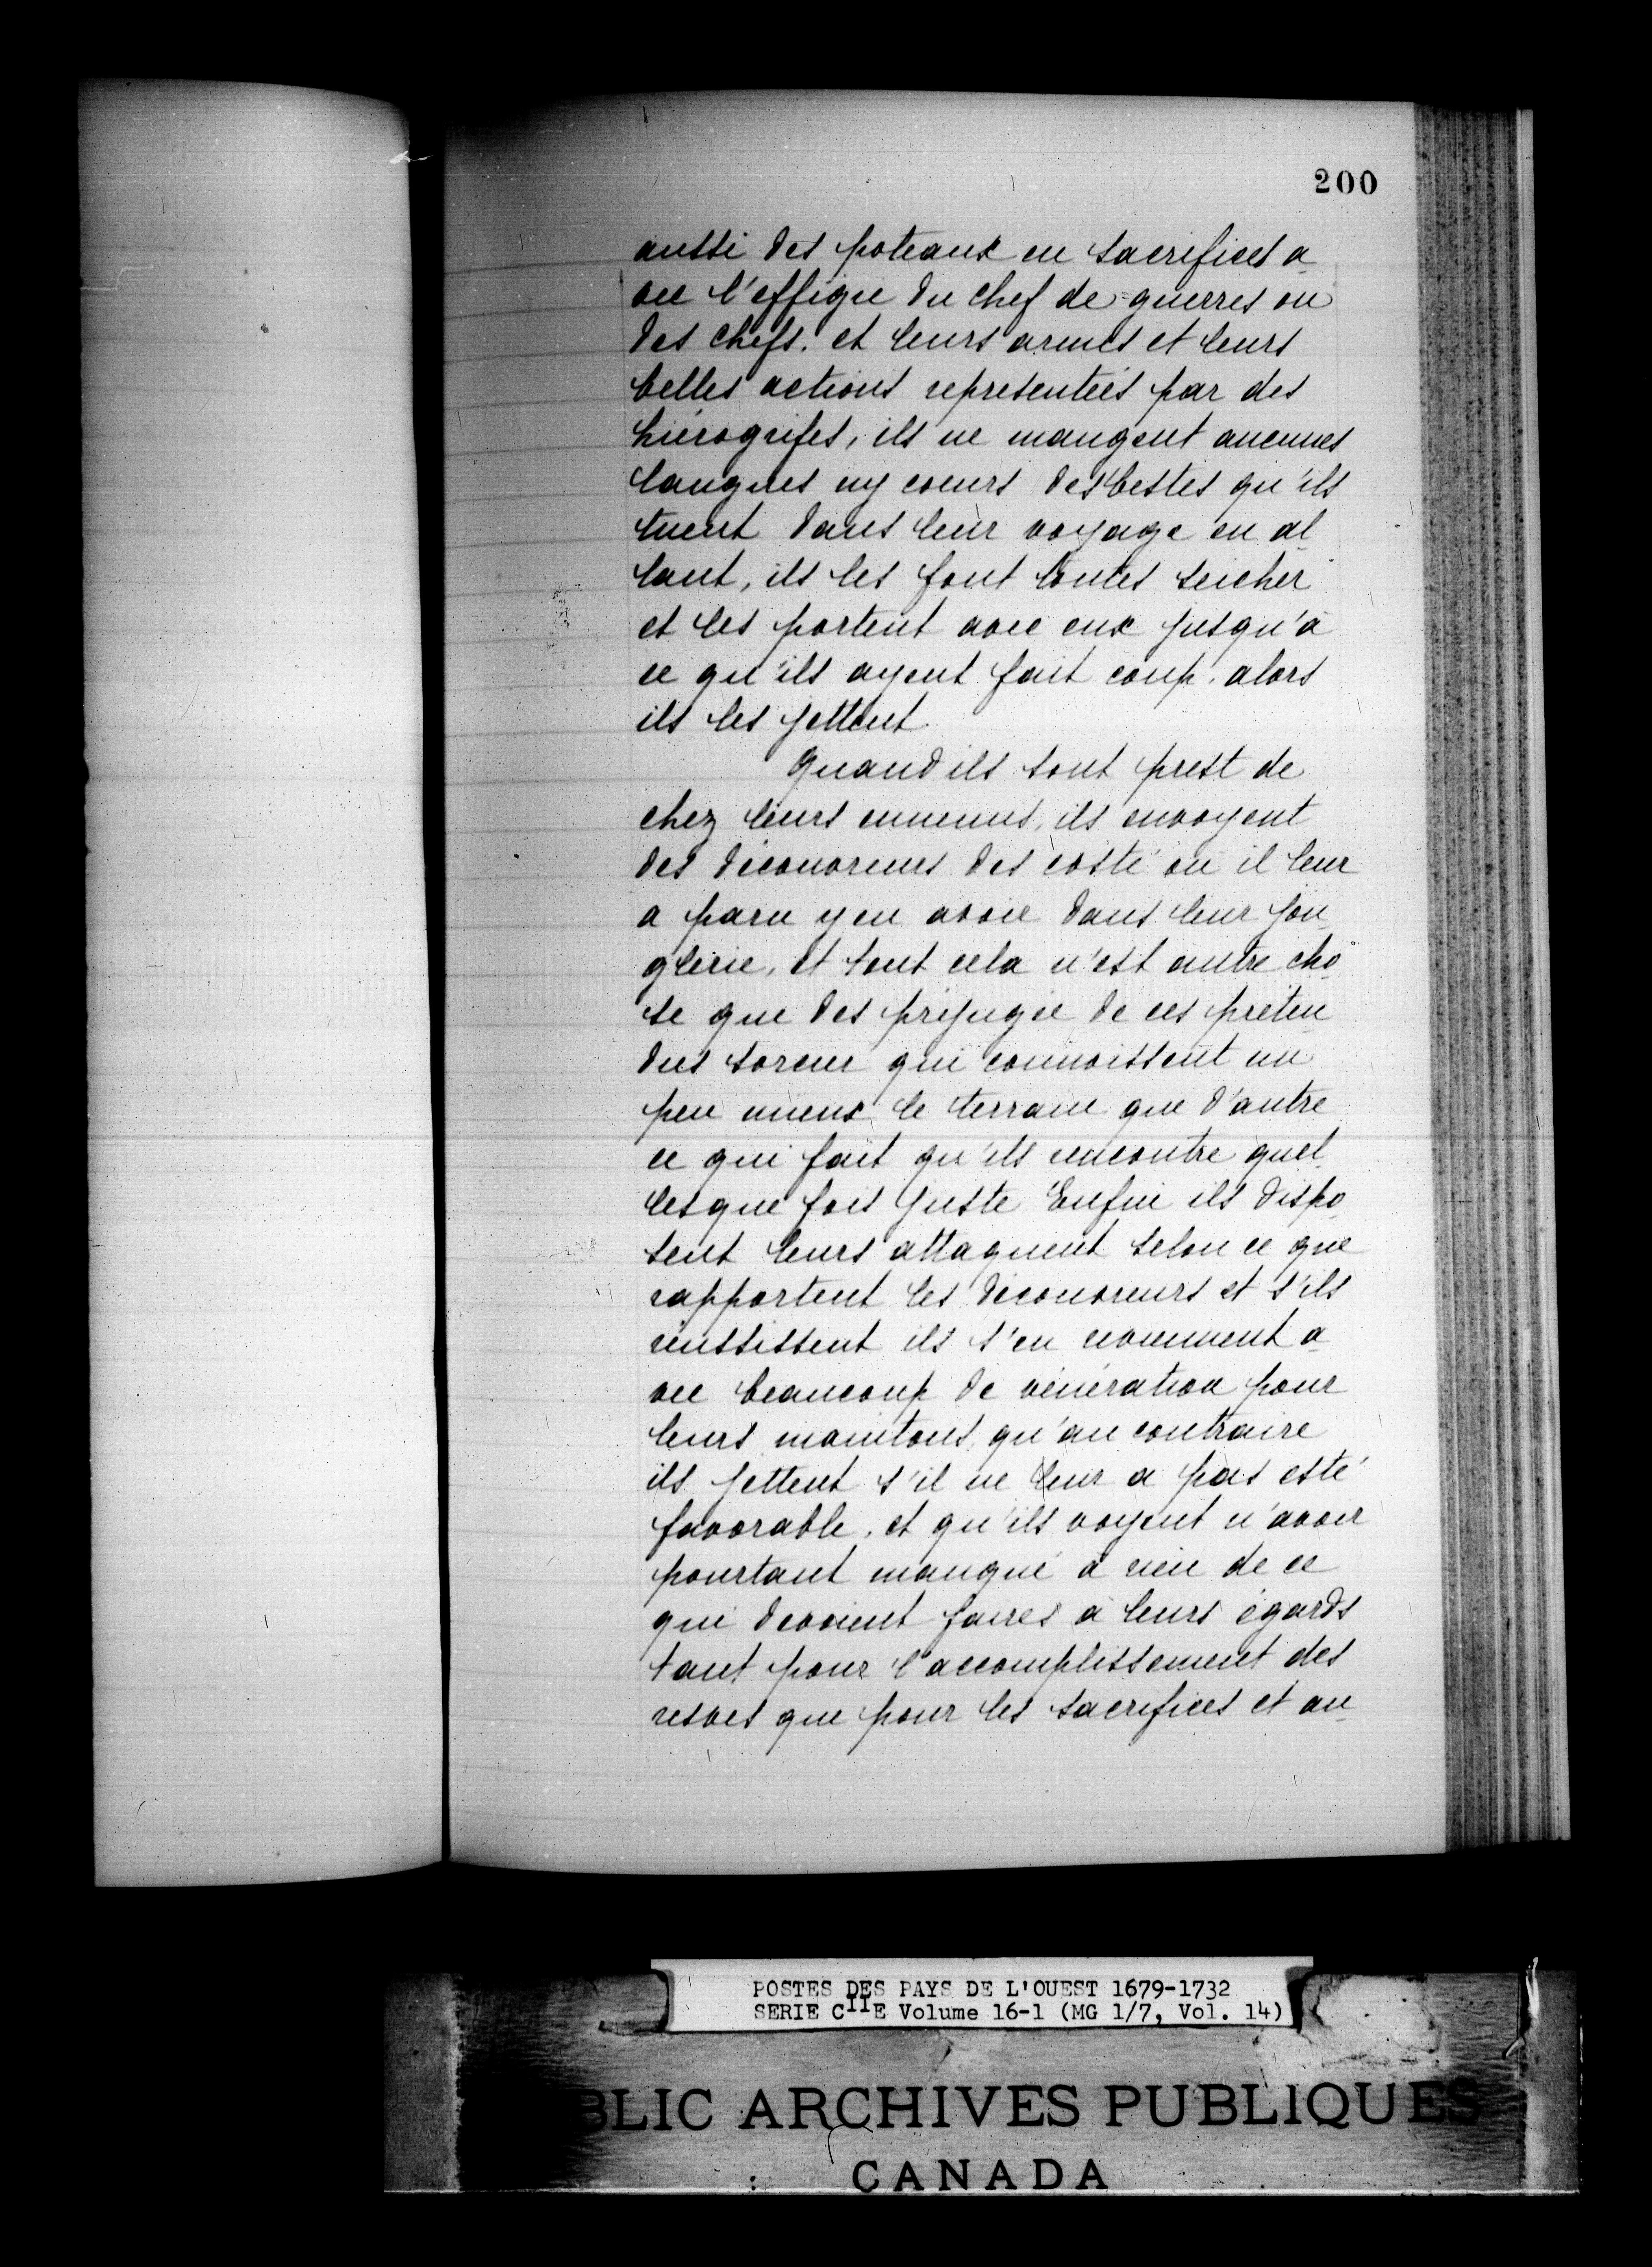 200
aussi des poteaux en sacrifices a-
vec l'effigie du chef de guerres ou
des chefs. et leurs armes et leurs
belles actions representées par des
hierogrifes, ils ne mangent aucunes
langues ny coeurs des bestes qu'ils
tuent dans leur voyage en al-
lant, ils les font toutes seicher
et les portent avec eux jusqu'à
ce qu'ils ayent fait coup. alors
ils les jettent
Quand ils sont prest de
chez leurs ennemis, ils envoyent
des découvreurs des costé où il leur
a paru y en avoir dans leur jon-
glerie, et tout cela n'est autre cho-
se que des préjugée de ces préten-
dus sorcier qui connoissent un
peu mieux le terrain que d'autre
ce qui fait qu'ils rencontre quel-
lesque fois juste Enfin ils dispo-
sent leurs attaquent selon ce que
rapportent les découvreurs et s'ils
réussissent ils s'en reviennent a-
vec beaucoup de vénération pour
leurs manitous, qu'au contraire
ils jettent s'il ne leur a pas esté
favorable, et qu'ils voyent n'avoir
pourtant manqué à rien de ce
qui devoient faires à leurs égards
tant pour l'accomplissement des
resves que pour les sacrifices et au-
POSTES DES PAYS DE L'OUEST 1679-1732
SERIE CIIE Volume 16-1 (MG 1/7, Vol. 14)
BLIC ARCHIVES PUBLIQUES
CANADA